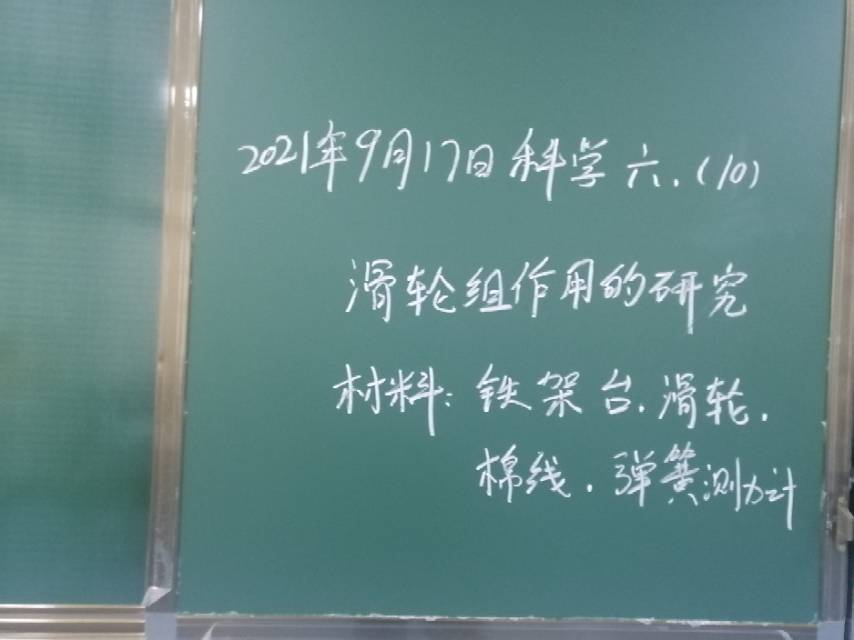 2021年9月17日科学六.(10)
滑轮组作用的研究
材料:铁架台.滑轮.
棉线.弹簧测力计